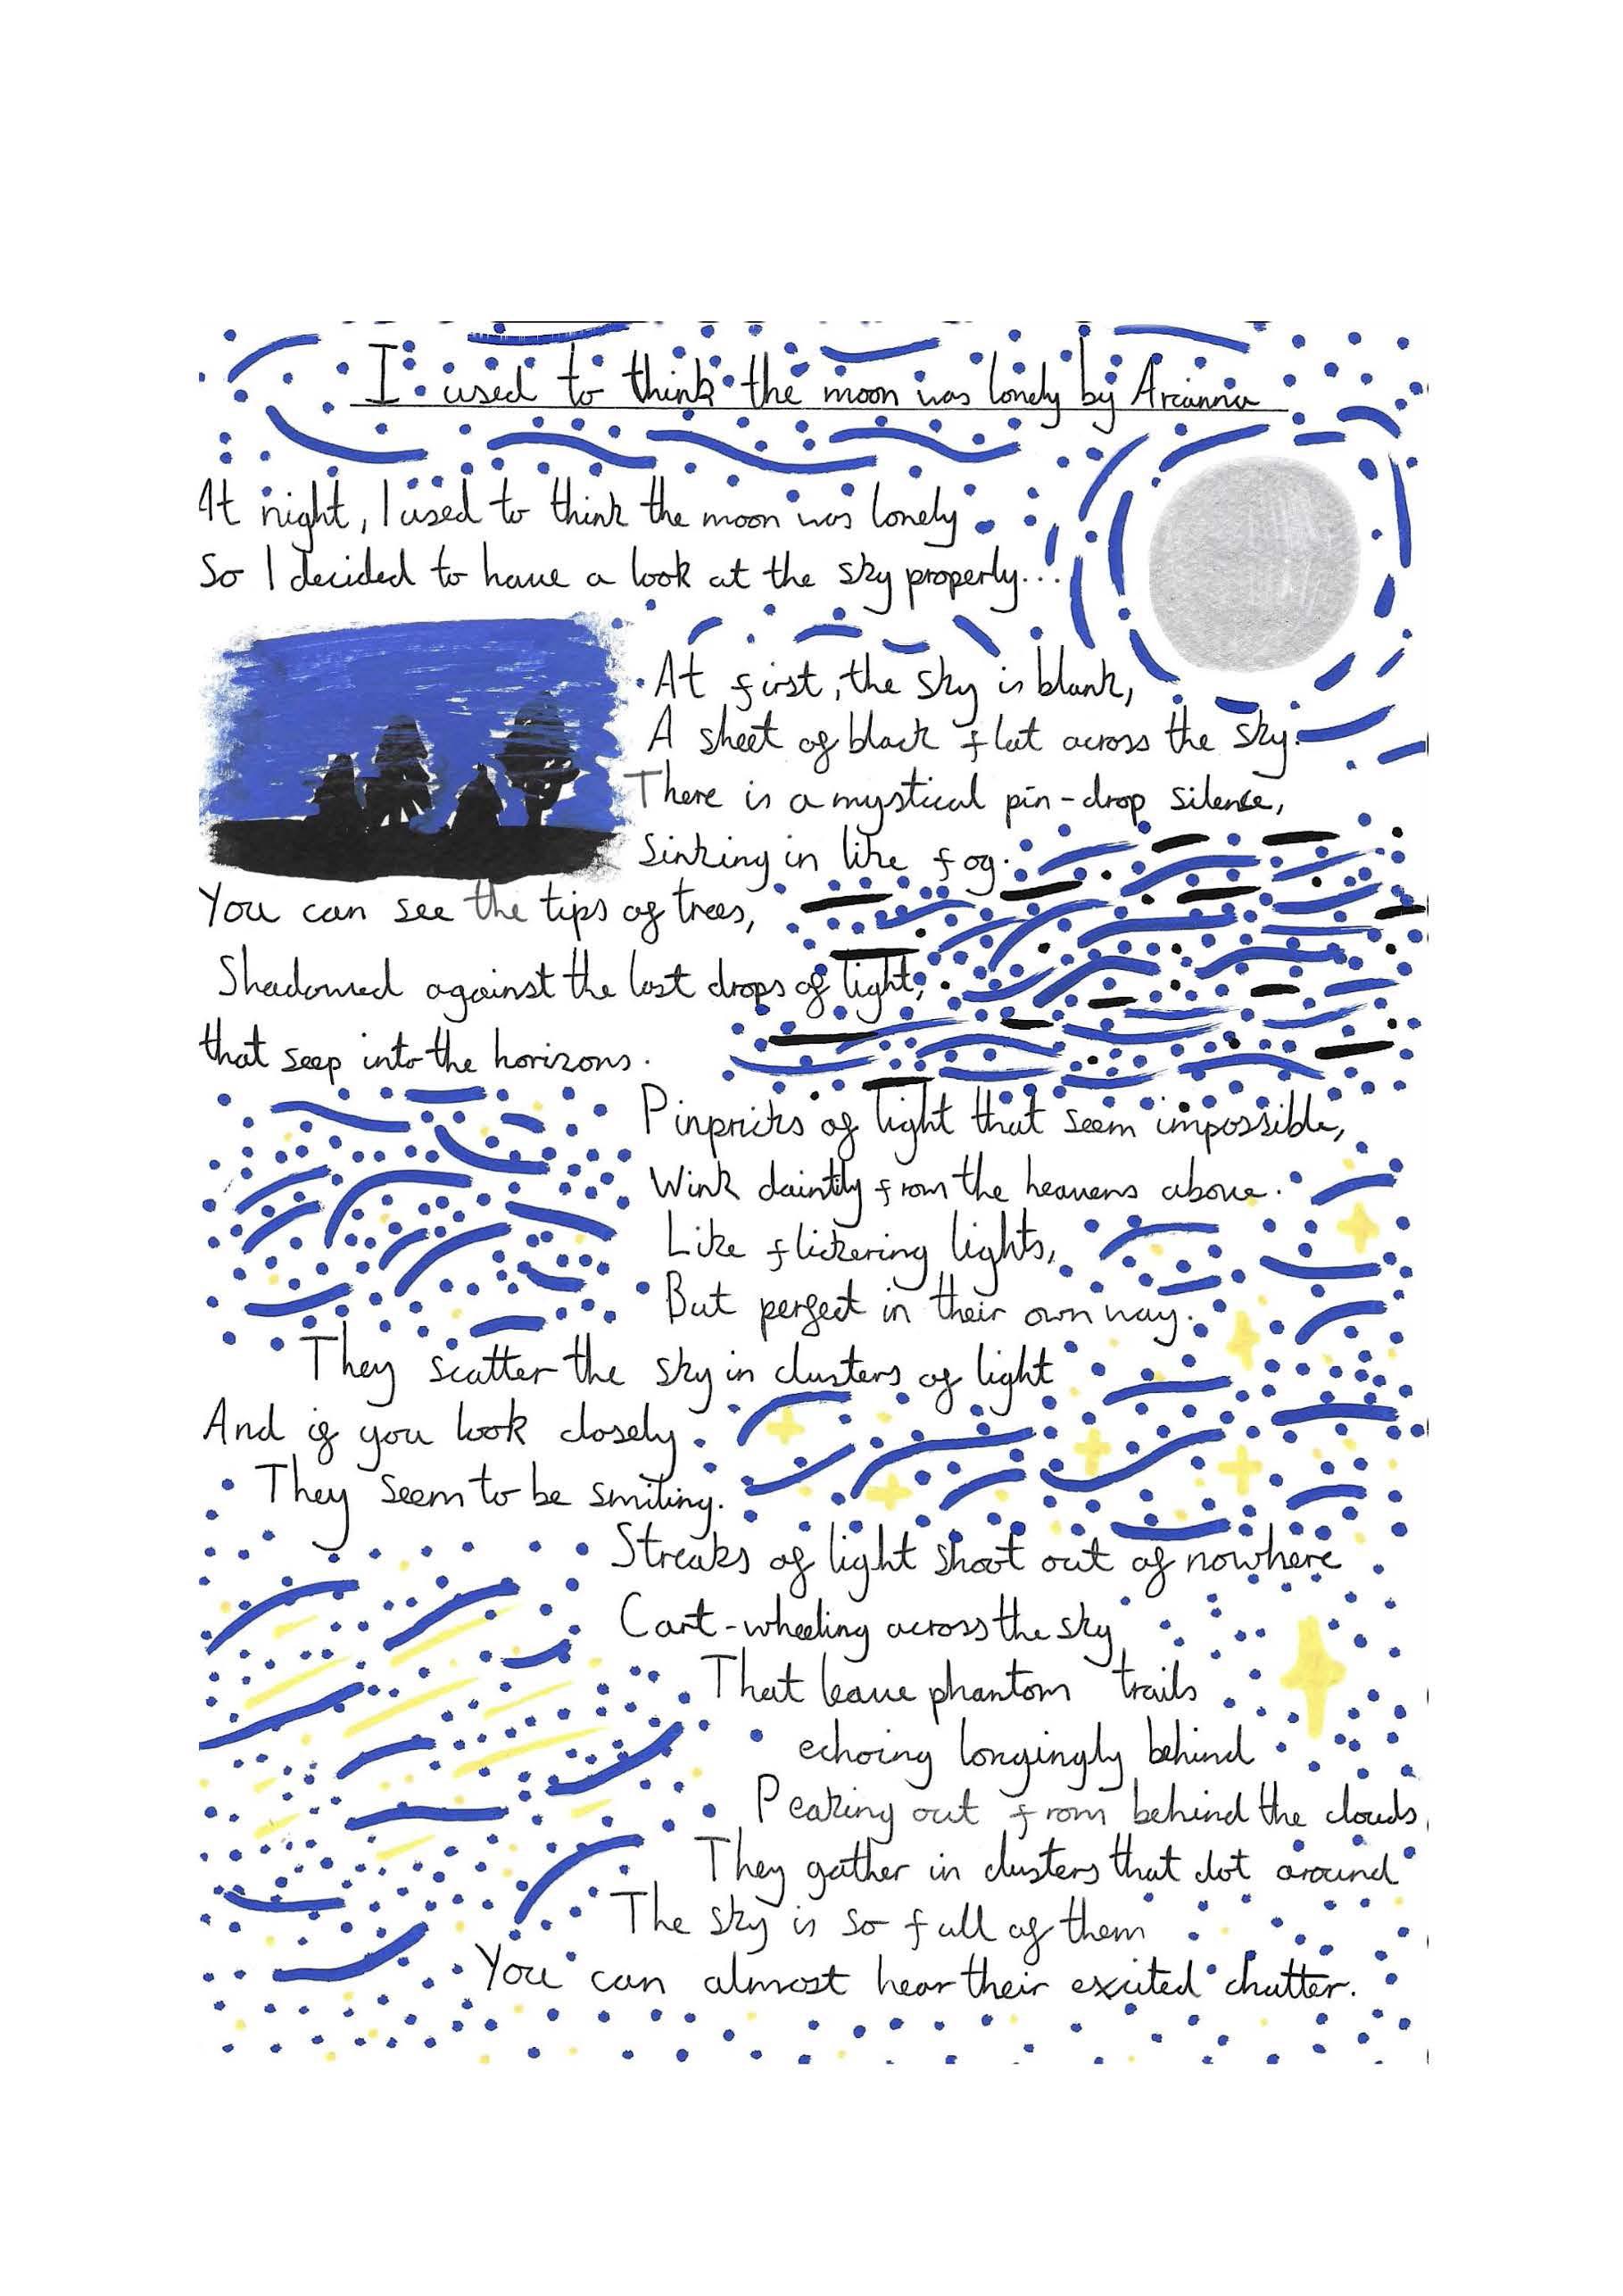 I used to think the moon was lonely by Arianna
At night, I used to think the moon was lonely
So I decided to have a look at the sky properly...
At first, the sky is blank,
A sheet of black flat across the sky.
There is a mystical pin-drop silence,
Sinking in like fog.
You can see the tips of trees,
Shadowed against the last drops of light,
that seep into the horizons.
Pinpricks of light that seem impossible,
Wink daintily from the heavens above.
Like flickering lights,
But perfect in their own way.
They scatter the sky in clusters of light
And if you look closely
They seem to be smiling.
Streaks of light shoot out of nowhere
Cart-wheeling across the sky
That leave phantom trails
echoing longingly behind
Peaking out from behind the clouds
They gather in clusters that dot around
The sky is so full of them
You can almost hear their excited chatter.